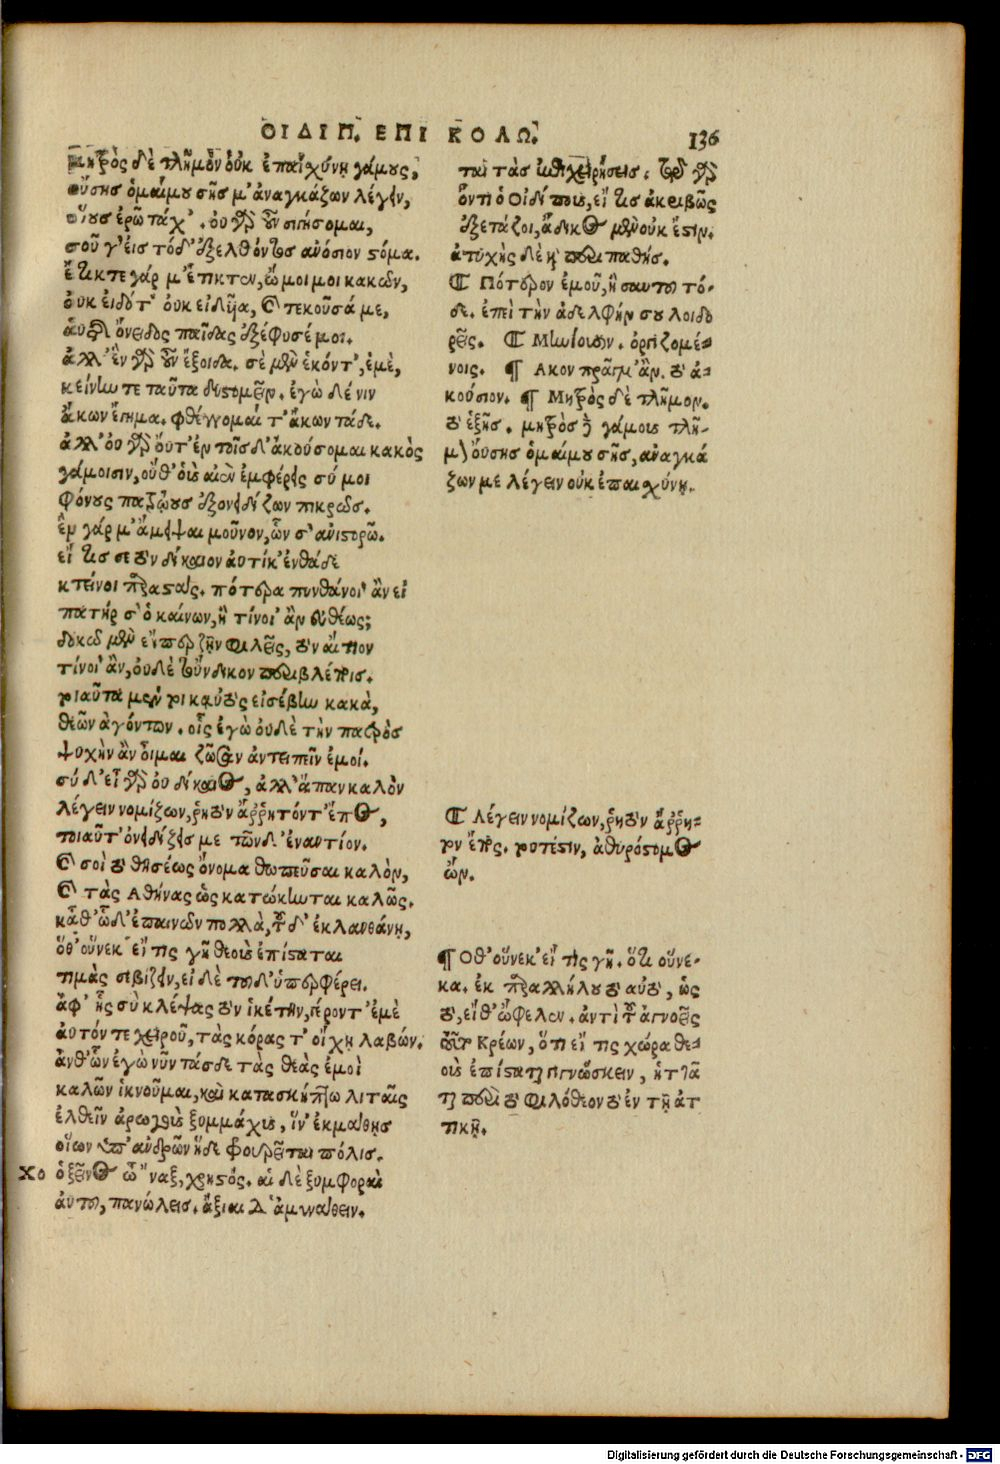 ΟΙΔΙΠ. ΕΠΙ ΚΟΛΩ. 136
μητρὸς δὲ τλῆμον οὐκ ἐπαισχύνῃ γάμους,
οὔσης ὁμαίμου σῆς μ' ἀναγκάζων λέγειν,
οἵους ἐρῶ τάχ'. οὐ γὰρ οὖν σιγήσομαι,
σοῦ γ' εἰς τόδ' ἐξελθόντος ἀνόσιον στόμα.
ἔτικτε γάρ μ' ἔτικτεν, ὤμοι μοι κακῶν,
οὐκ εἰδότ' οὐκ εἰδυῖα, καὶ τεκοῦσά με,
αὑτῆς ὄνειδος παῖδας ἐξέφυσέ μοι.
ἀλλ' ἓν γὰρ οὖν ἔξοιδα. σὲ μὲν ἑκόντ', ἐμὲ,
κείνην τε ταῦτα δυστομεῖν. ἐγὼ δέ νιν
ἄκων ἔγημα. φθέγγομαί τ' ἄκων τάδε.
ἀλλ' οὐ γὰρ οὔτ' ἐν τοῖσδ' ἀκούσομαι κακὸς
γάμοισιν, οὔθ' οἷς αἰὲν ἐμφέρεις σύ μοι
φόνους πατρῴους ἐξονειδίζων πικρῶς.
ἓν γάρ μ' ἄμειψαι μοῦνον, ὧν σ' ἀνιστορῶ.
εἴ τις σε τὸν δίκαιον αὐτίκ' ἐνθάδε
κτείνοι παραστάς. πότερα πυνθάνοι' ἂν εἰ
πατήρ σ' ὁ καίνων, ἢ τίνοι' ἂν εὐθέως;
δοκῶ μὲν εἴπερ ζῆν φιλεῖς, τὸν αἴτιον
τίνοι' ἂν, οὐδὲ τοὔνδικον περιβλέποις.
τοιαῦτα μέντοι καὐτὸς εἰσέβην κακὰ,
θεῶν ἀγόντων. οἷς ἐγὼ οὐδὲ τὴν πατρὸς
ψυχὴν ἂν οἶμαι ζῶσαν ἀντειπεῖν ἐμοί.
σύ δ' εἶ γὰρ οὐ δίκαιος, ἀλλ' ἅπαν καλὸν
λέγειν νομίζων, ῥητὸν ἄῤῥητόν τ' ἔπος,
τοιαῦτ' ὀνειδίζεις με τῶνδ' ἐναντίον.
καὶ σοὶ τὸ θησέως ὄνομα θωπεῦσαι καλὸν,
καὶ τὰς Αθήνας ὡς κατώκηνται καλῶς.
κᾆθ' ὧδ' ἐπαινῶν πολλὰ, τοῦδ' ἐκλανθάνῃ,
ὅθ' οὕνεκ' εἴ τις γῆ θεοὺς ἐπίσταται
τιμὰς σεβίζειν, εἰδὲ τοῦδ' ὑπερφέρει.
ἀφ' ἧς σὺ κλέψας τὸν ἱκέτην, γέροντ' ἐμὲ
αὐτόν τε χειροῦ, τὰς κόρας τ' οἴχῃ λαβών.
ἀνθ' ὧν ἐγὼ νῦν τάσδε τὰς θεὰς ἐμοὶ
καλῶν ἱκνοῦμαι, καὶ κατασκήπτω λιταῖς
ἐλθεῖν ἀρωγοὺς ξυμμάχους, ἵν' ἐκμάθῃς
οἵων ὑπ' ἀνδρῶν ἥδε φρουρεῖται πόλις.
ΧΟ ὁ ξεῖνος ὦ 'ναξ, χρηστός. αἱ δὲ ξυμφοραὶ
αὐτοῦ, πανώλεις. ἄξιαι δ' ἀμυναθεῖν.
ται τὰς ἐπιχειρήσεις. τῷ γὰρ
ὄντι ὁ Οἰδίπους, εἴ τις ἀκριβῶς
ἐξετάζοι, ἄδικος μὲν οὐκ ἔστιν.
ἀτυχὴς δὲ καὶ περιπαθής.
¶ Πότερον ἐμοῦ, ἢ σαυτοῦ τό-
δε. ἐπεὶ τὴν ἀδελφήν σου λοιδο
ρεῖς. ¶ Μηνίουσιν. ὀργιζομέ-
νοις. ¶ Ακον πρᾶγμ' ἄν. τὸ ἀ-
κούσιον. ¶ Μητρὸς δὲ τλῆμον.
τὸ ἑξῆς. μητρὸς δὲ γάμους τλῆ-
μον οὔσης ὁμαίμου σῆς, ἀναγκά
ζων με λέγειν οὐκ ἐπαισχύνῃ.
¶ Λέγειν νομίζων, ῥητὸν ἄῤῥη-
τον ἔπος. τουτέστιν, ἀθυρόστομος
ὤν.
¶ Οθ' οὕνεκ' εἴ τις γῆ. ὅτι οὕνε-
κα. ἐκ παραλλήλου τὸ αὐτὸ, ὡς
τὸ, εἴθ' ὤφελον. ἀντὶ τοῦ ἀγνοεῖς
Κρέων, ὅτι εἴ τις χώρα θε-
οὺς ἐπίσταται γιγνώσκειν, ἡττᾶ
ται περὶ τὸ φιλόθεον τὸ ἐν τῇ ἀτ
τικῇ.
Digitalisierung gefördert durch die Deutsche Forschungsgemeinschaft - DFG